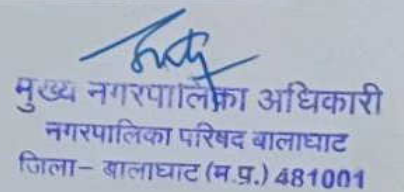 मुख्य नगरपालिका अधिकारी
नगरपालिका परिषद बालाघाट
जिला– बालाघाट (म.प्र.) 481001